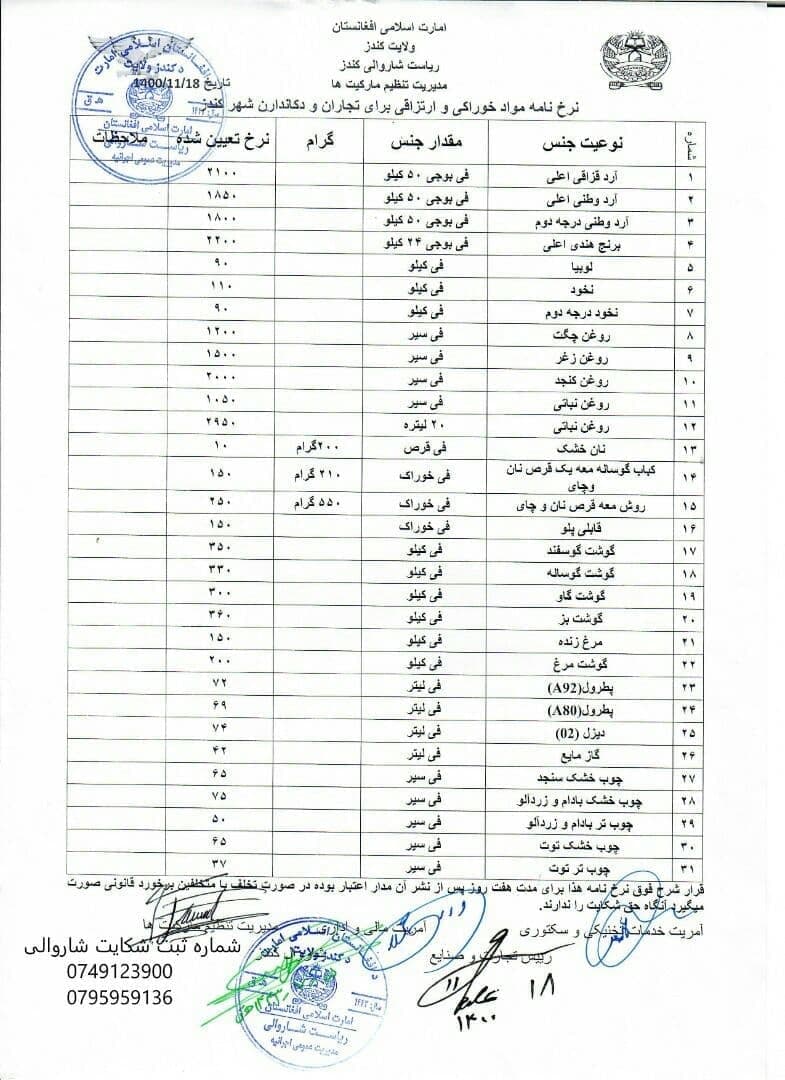 امارت اسلامی افغانستان
ولایت کندز
ریاست شاروالی کندز
مدیریت تنظیم مارکیت ها
تاریخ 1400/11/18
نرخ نامه مواد خوراکی و ارتزاقی برای تجاران و دکاندارن شهر کندز
شماره نوعیت جنس مقدار جنس گرام نرخ تعیین شده ملاحظات
۱ آرد قزاقی اعلی فی بوجی ۵۰ کیلو ۲۱۰۰
۲ آرد وطنی اعلی فی بوجی ۵۰ کیلو ۱۸۵۰
۳ آرد وطنی درجه دوم فی بوجی ۵۰ کیلو ۱۸۰۰
۴ برنج هندی اعلی فی بوجی ۲۴ کیلو ۲۲۰۰
۵ لوبیا فی کیلو ۹۰
۶ نخود فی کیلو ۱۱۰
۷ نخود درجه دوم فی کیلو ۹۰
۸ روغن چگت فی سیر ۱۲۰۰
۹ روغن زغر فی سیر ۱۵۰۰
۱۰ روغن کنجد فی سیر ۲۰۰۰
۱۱ روغن نباتی فی سیر ۱۰۵۰
۱۲ روغن نباتی ۲۰ لیتره ۲۹۵۰
۱۳ نان خشک فی قرص ۲۰۰گرام ۱۰
۱۴ کباب گوساله معه یک قرص نان وچای فی خوراک ۲۱۰ گرام ۱۵۰
۱۵ روش معه قرص نان و چای فی خوراک ۵۵۰ گرام ۲۵۰
۱۶ قابلی پلو فی خوراک ۱۵۰
۱۷ گوشت گوسفند فی کیلو ۳۵۰
۱۸ گوشت گوساله فی کیلو ۳۳۰
۱۹ گوشت گاو فی کیلو ۳۰۰
۲۰ گوشت بز فی کیلو ۳۶۰
۲۱ مرغ زنده فی کیلو ۱۵۰
۲۲ گوشت مرغ فی کیلو ۲۰۰
۲۳ پطرول(A92) فی لیتر ۷۲
۲۴ پطرول(A80) فی لیتر ۶۹
۲۵ دیزل (02) فی لیتر ۷۴
۲۶ گاز مایع فی لیتر ۴۲
۲۷ چوب خشک سنجد فی سیر ۶۵
۲۸ چوب خشک بادام و زردآلو فی سیر ۷۵
۲۹ چوب تر بادام و زردآلو فی سیر ۵۰
۳۰ چوب خشک توت فی سیر ۶۵
۳۱ چوب تر توت فی سیر ۳۷
قرار شرح فوق نرخ نامه هذا برای مدت هفت روز پس از نشر آن مدار اعتبار بوده در صورت تخلف با متخلفین برخورد قانونی صورت
میگیرد آنگاه حق شکایت را ندارند.
آمریت خدمات تخنیکی و سکتوری آمریت مالی و اداری مدیریت تنظیم مارکیت ها
رییس تجارت و صنایع
شماره ثبت شکایت شاروالی
0749123900
0795959136
۱۸
۱۱
۱۴۰۰
د افغانستان اسلامی امارت
د کندز ولایت
امارت اسلامی افغانستان
ریاست شاروالی
مدیریت عمومی اجرائیه
د افغانستان اسلامی امارت
د کندز ولایت
امارت اسلامی افغانستان
ریاست شاروالی
مدیریت عمومی اجرائیه